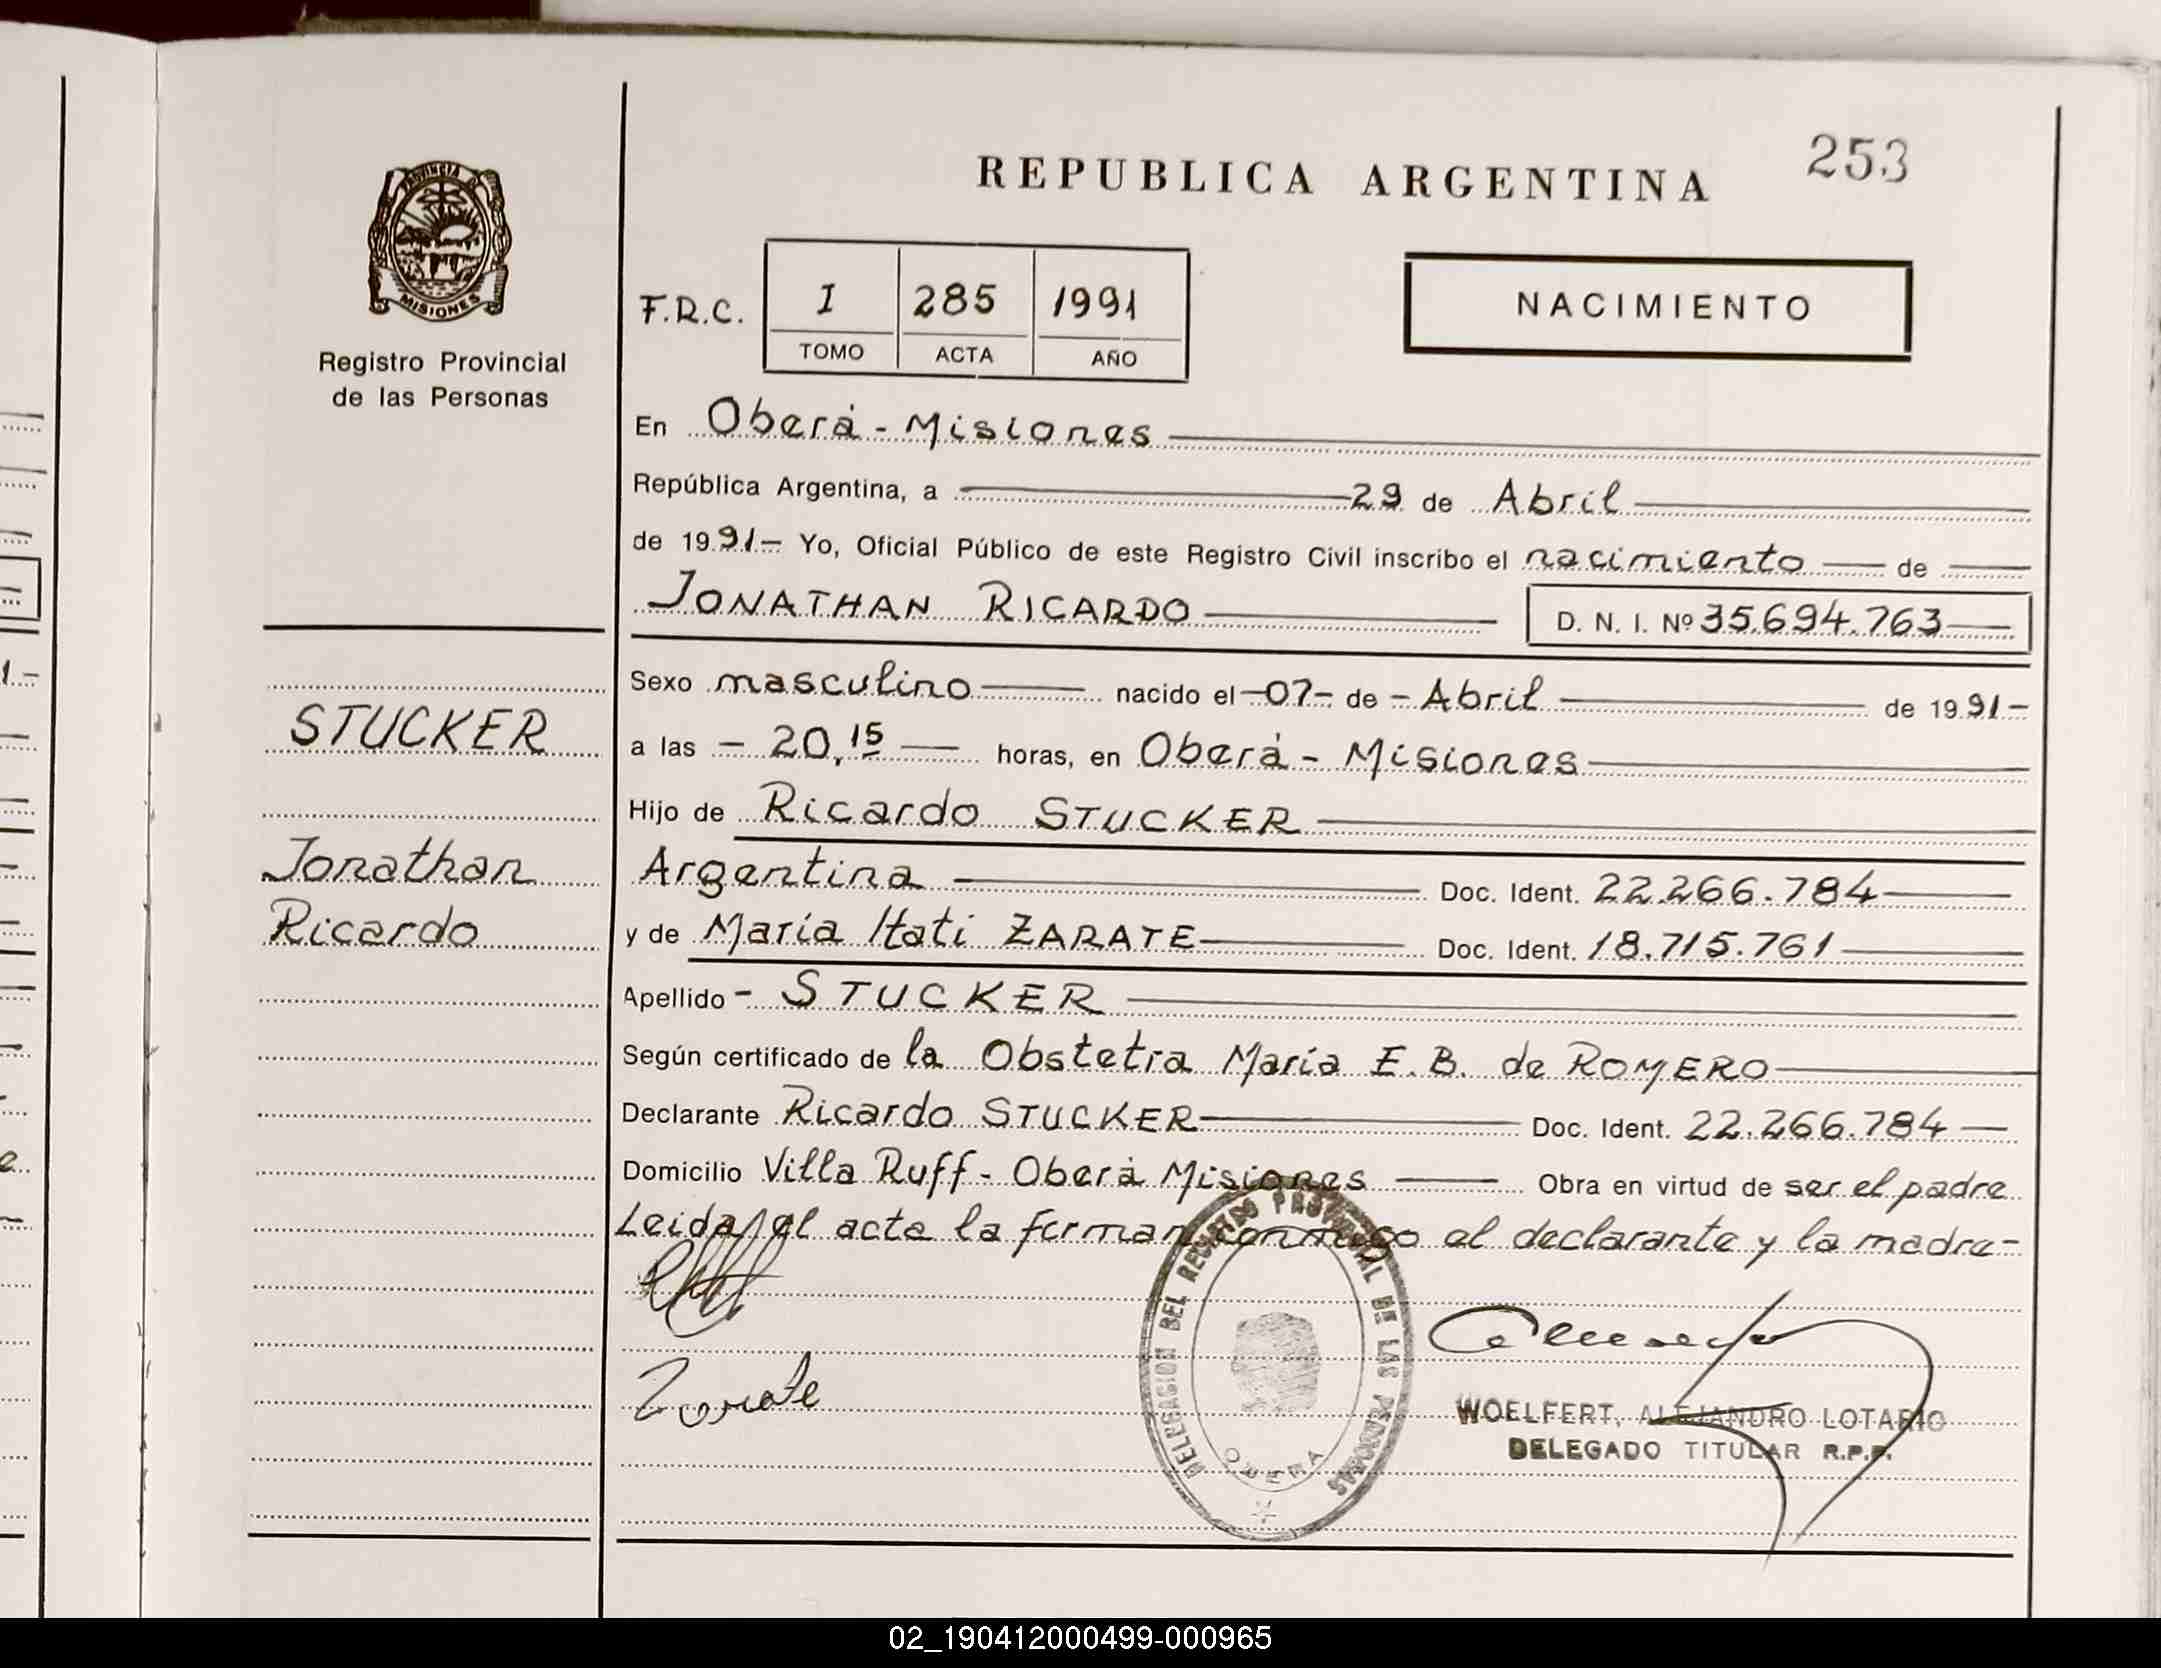 253
REPUBLICA ARGENTINA
PROVINCIA DE
MISIONES
Registro Provincial
de las Personas
F.R.C. I 285 1991
TOMO ACTA AÑO
NACIMIENTO
En Oberá - Misiones
República Argentina, a 29 de Abril
de 1991- Yo, Oficial Público de este Registro Civil inscribo el nacimiento de
JONATHAN RICARDO D. N. I. Nº 35.694.763
Sexo masculino nacido el -07- de - Abril de 1991-
STUCKER
a las - 20,15 horas, en Oberá - Misiones
Hijo de Ricardo STUCKER
Jonathan
Argentina Doc. Ident. 22.266.784
Ricardo
y de María Itati ZARATE Doc. Ident. 18.715.761
Apellido - STUCKER
Según certificado de la Obstetra María E. B. de ROMERO
Declarante Ricardo STUCKER Doc. Ident. 22.266.784
Domicilio Villa Ruff - Oberá Misiones Obra en virtud de ser el padre
Leida el acta la firman conmigo el declarante y la madre-
DELEGACION DEL REGISTRO PROVINCIAL DE LAS PERSONAS
OBERA
Zarate
WOELFERT, ALEJANDRO LOTARIO
DELEGADO TITULAR R.P.P.
02_190412000499-000965